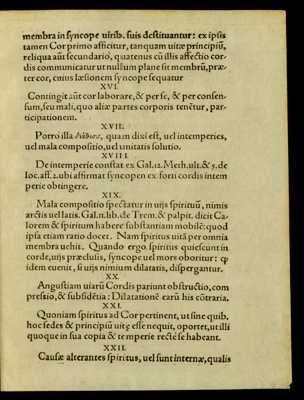 membra in syncope uirib. suis destituantur: ex ipsis
tamen Cor primo afficitur, tanquam uitæ principiũ,
reliqua aũt secundario, quatenus cũ illis affectio cor-
dis communicatur ut nullum plane sit membrũ, præ-
ter cor, cuius læsionem syncope sequatur
XVI.
Contingit aũt cor laborare, & per se, & per consen-
sum, seu mali, quo aliæ partes corporis tenẽtur, par-
ticipationem.
XVII.
Porro illa quam dixi est, uel intemperies,
uel mala compositio, uel unitatis solutio.
XVIII
De intemperie constat ex Gal. 12. Meth. ult. & 5. de
loc. aff. 2. ubi affirmat syncopen ex forti cordis intem
perie obtingere.
XIX.
Mala compositio spectatur in uijs spirituũ, nimis
arctis uel latis. Gal. n. lib. de Trem. & palpit. dicit Ca-
lorem & spiritum habere substantiam mobilẽ: quod
ipsa etiam ratio docet. Nam spiritus uitã per omnia
membra uehit. Quando ergo spiritus quiescunt in
corde, uijs præclusis, syncope uel mors oboritur: ꝗ
idem euenit, si uijs nimium dilatatis, dispergantur.
XX.
Angustiam uiarũ Cordis pariunt obstructio, com
pressio, & subsidẽtia: Dilatationẽ earũ his cõtraria.
XXI.
Quoniam spiritus ad Cor pertinent, ut sine quib.
hoc sedes & principiũ uitę esse nequit, oportet, ut illi
quoque in sua copia & temperie rectè se habeant.
XXII.
Causæ alterantes spiritus, uel sunt internæ, qualis